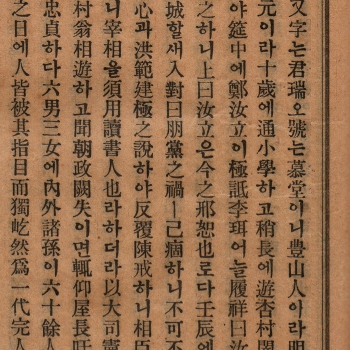 又字는君瑞오號는慕堂이니豊山人이라明
元이라十歲에通小學하고稍長에遊杏村閔
야筵中에鄭汝立이極詆李珥어늘履祥曰汝
之하니上曰汝立은今之邢恕也로다壬辰에
城할새入對曰朋黨之禍ㅣ已痼하니不可不
心과洪範建極之說하야反覆陳戒하니相臣
니宰相을須用讀書人也라하더라以大司憲
村翁相遊하고聞朝政闕失이면輒仰屋長吁
忠貞하다六男三女에內外諸孫이六十餘人
之日에人皆被其指目而獨屹然爲一代完人